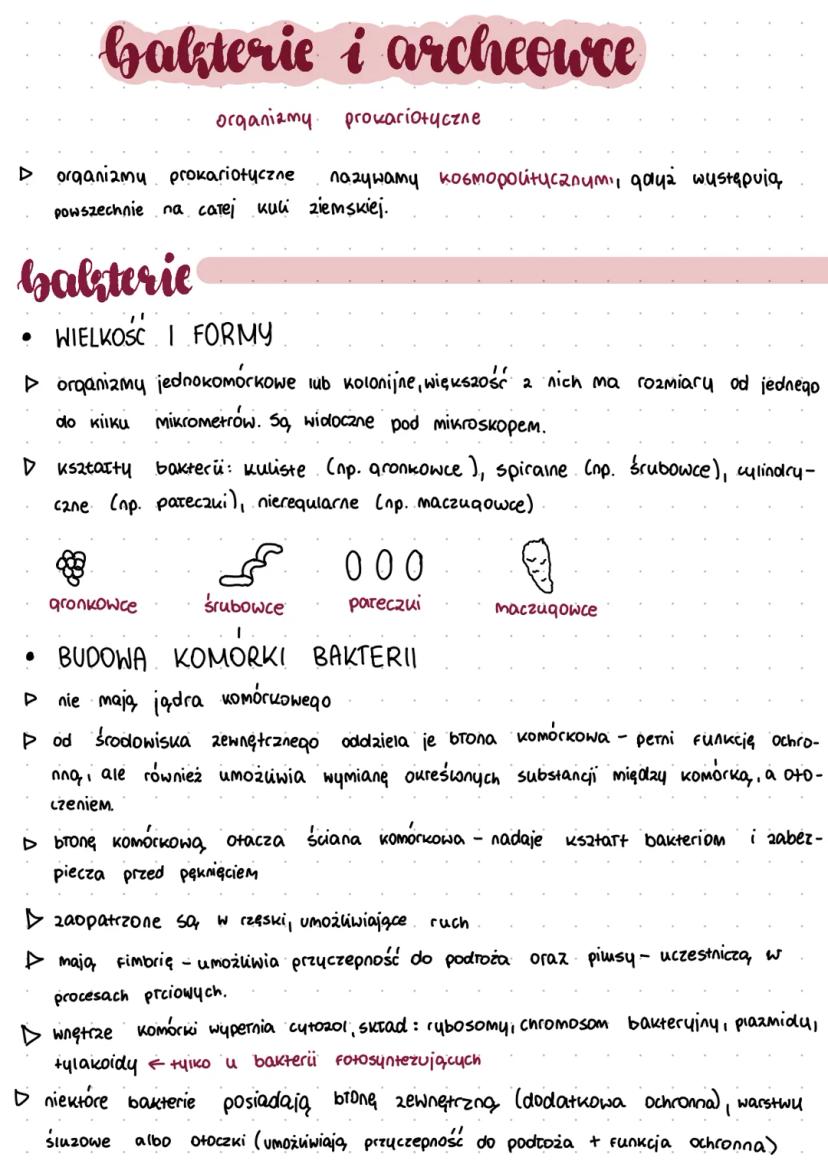 bakterie i archeowce
organizmy prokariotyczne
▷ organizmy prokariotyczne nazywamy kosmopolitycznymi, gdyż występują
powszechnie na całej kuli ziemskiej.
bakterie
• WIELKOŚĆ I FORMY
▷ organizmy jednokomórkowe lub kolonijne, większość z nich ma rozmiary od jednego
do kilku mikrometrów. Są widoczne pod mikroskopem.
▷ kształty bakterii: kuliste (np. gronkowce), spiralne (np. śrubowce), cylindry-
czne (np. pałeczki), nieregularne (np. maczugowce)
gronkowce śrubowce pałeczki maczugowce
• BUDOWA KOMÓRKI BAKTERII
▷ nie mają jądra komórkowego
▷ od środowiska zewnętrznego oddziela je błona komórkowa - pełni funkcję ochro-
nną, ale również umożliwia wymianę określonych substancji między komórką, a oto-
czeniem.
▷ błonę komórkową otacza ściana komórkowa - nadaje kształt bakteriom i zabez-
piecza przed pęknięciem
▷ zaopatrzone są w rzęski, umożliwiające ruch
▷ mają fimbrię - umożliwia przyczepność do podłoża oraz pilusy - uczestniczą w
procesach płciowych.
▷ wnętrze komórki wypełnia cytozol, skład: rybosomy, chromosom bakteryjny, plazmidy,
tylakoidy ← tylko u bakterii fotosyntezujących
▷ niektóre bakterie posiadają błonę zewnętrzną (dodatkowa ochronna), warstwy
śluzowe albo otoczki (umożliwiają przyczepność do podłoża + funkcja ochronna)